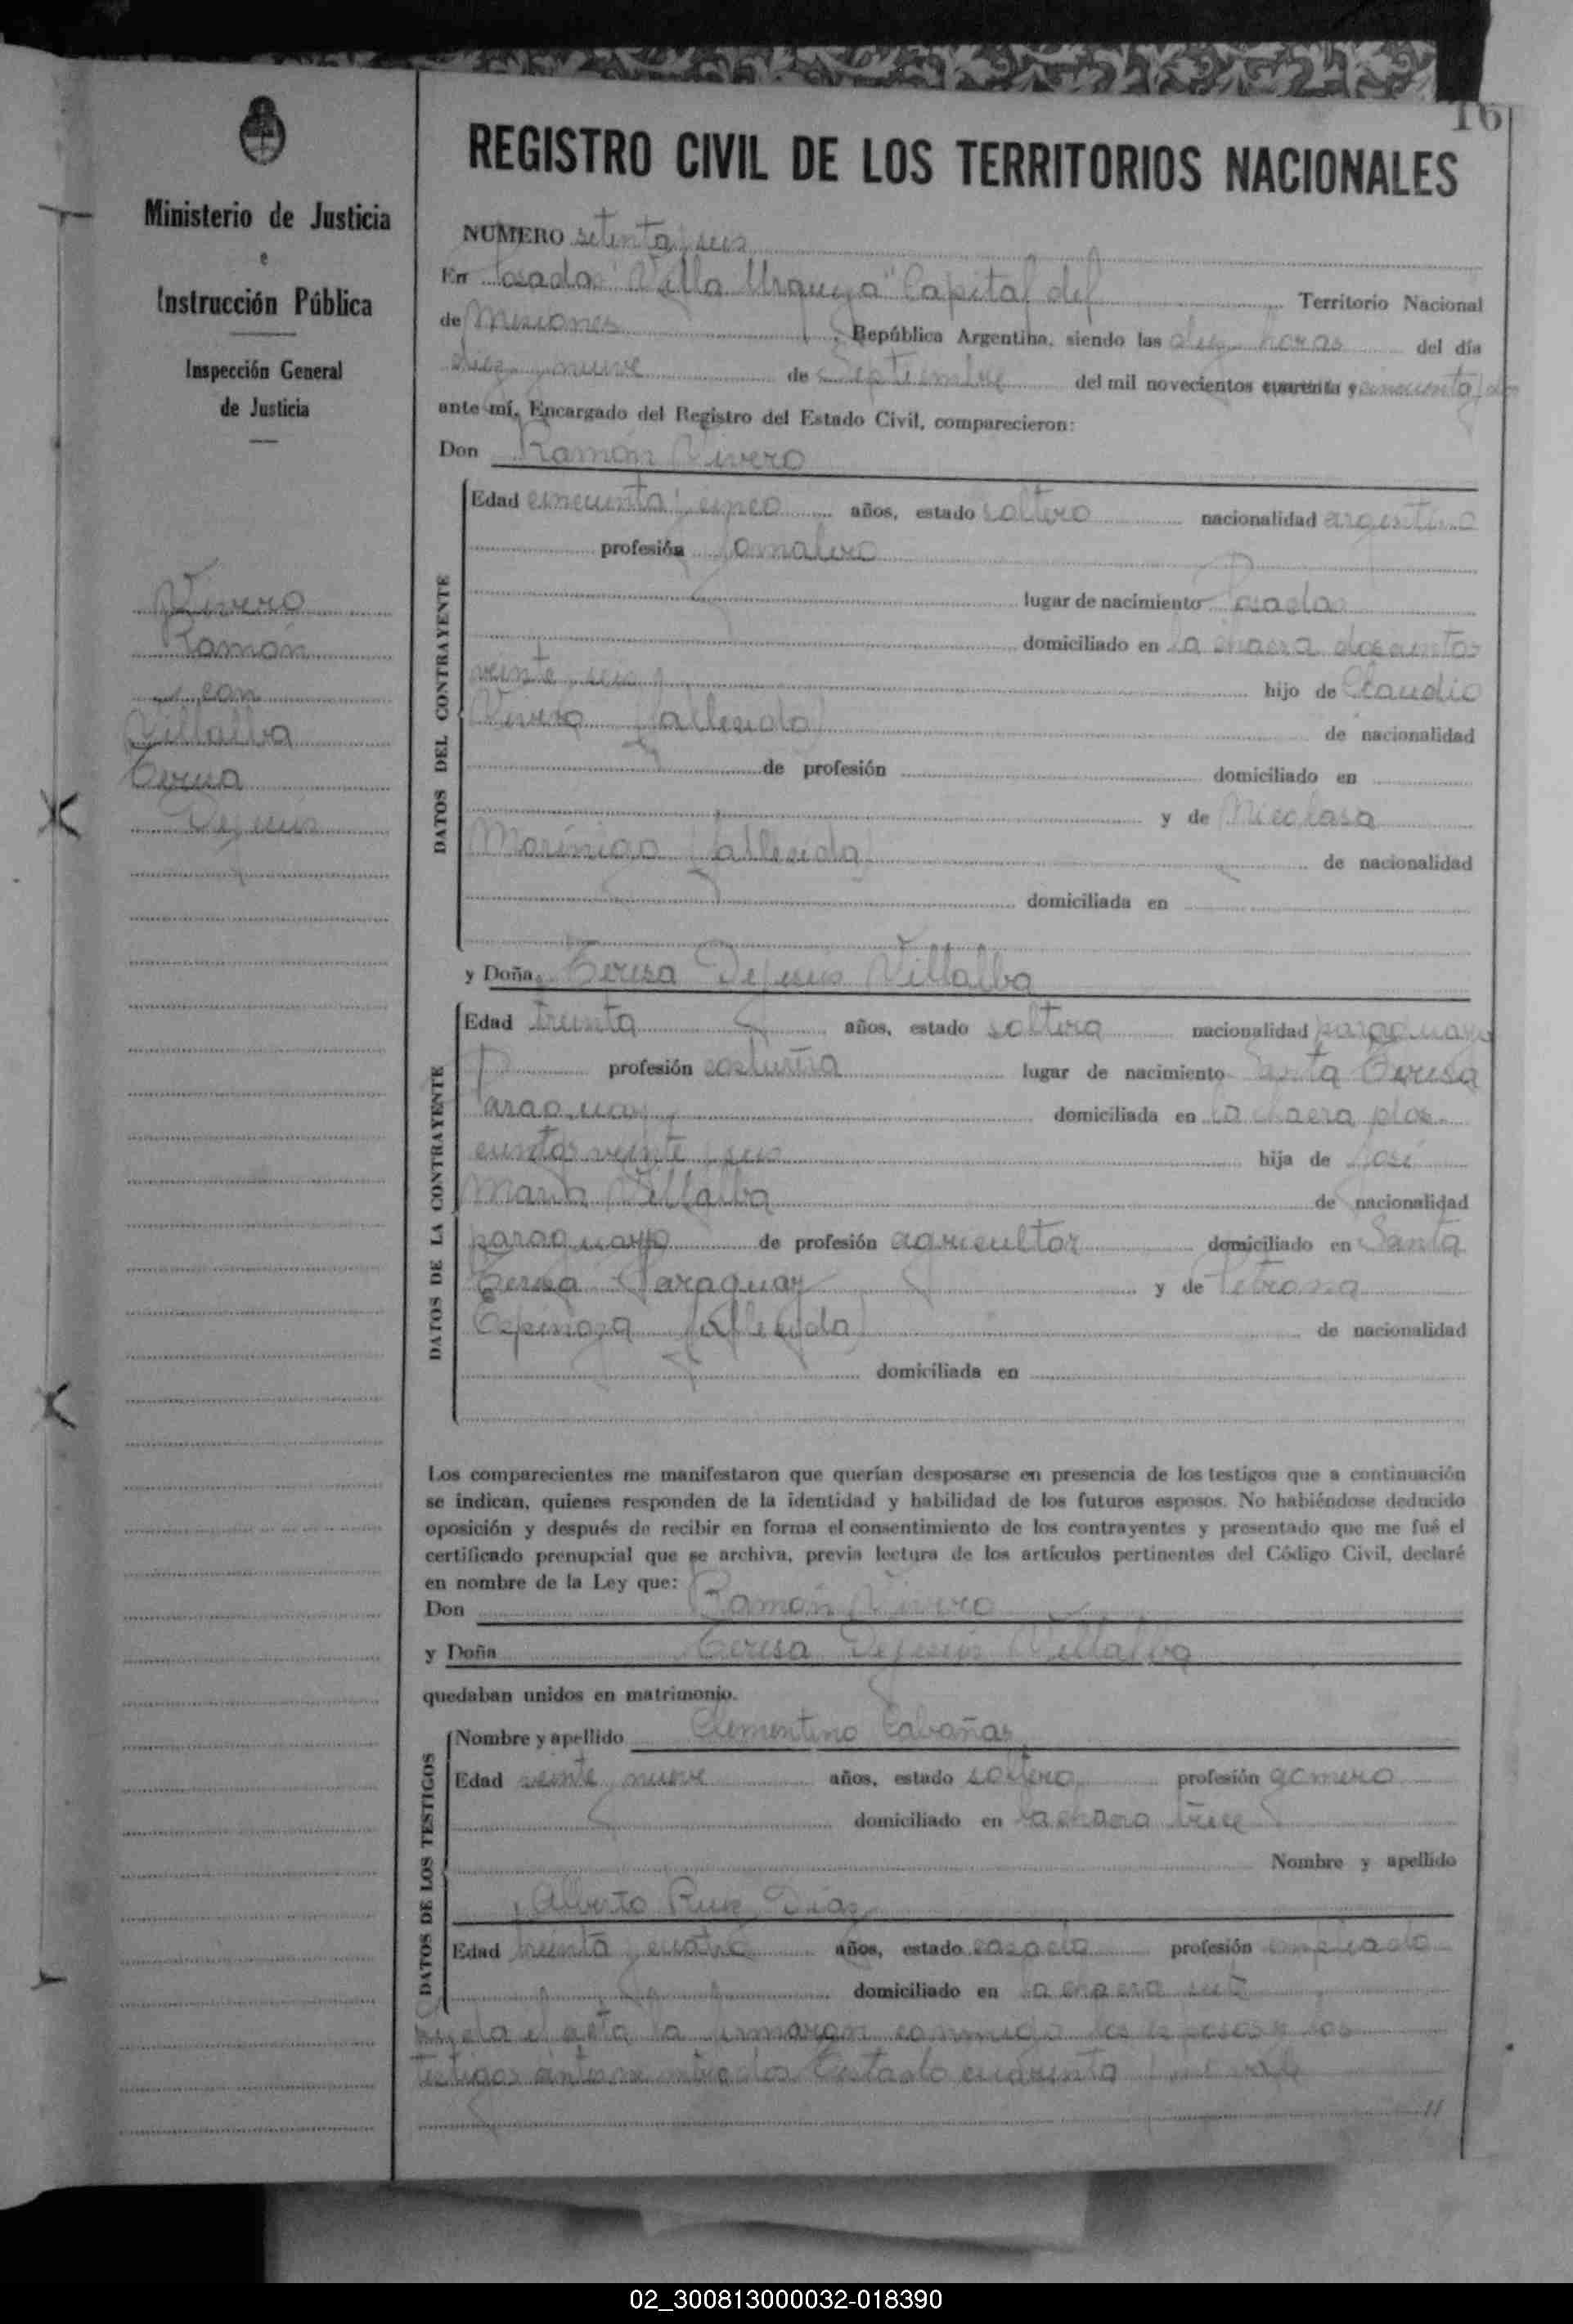 16
REGISTRO CIVIL DE LOS TERRITORIOS NACIONALES
Ministerio de Justicia
e
Instrucción Pública
Inspección General
de Justicia
Rivero
Ramón
con
Villalba
Teresa
Dejesús
NUMERO setenta y seis
En Posadas "Villa Urquiza" Capital del Territorio Nacional
de Misiones, República Argentina, siendo las diez horas del día
diez y nueve de Septiembre del mil novecientos cuarenta y cincuenta
ante mí, Encargado del Registro del Estado Civil, comparecieron:
Don Ramón Rivero
DATOS DEL CONTRAYENTE
Edad cincuenta y cinco años, estado soltero nacionalidad argentino
profesión Jornalero
lugar de nacimiento Posadas
domiciliado en la chacra doscientos
veinte y seis hijo de Claudio
Rivero (fallecido) de nacionalidad
de profesión domiciliado en
y de Nicolasa
Morínigo (fallecida) de nacionalidad
domiciliada en
y Doña Teresa Dejesús Villalba
DATOS DE LA CONTRAYENTE
Edad treinta años, estado soltera nacionalidad paraguaya
profesión costurera lugar de nacimiento Santa Teresa
Paraguay domiciliada en la chacra dos
cientos veinte y seis hija de José
María Villalba de nacionalidad
paraguayo de profesión agricultor domiciliado en Santa
Teresa Paraguay y de Petrona
Espinoza (fallecida) de nacionalidad
domiciliada en
Los comparecientes me manifestaron que querían desposarse en presencia de los testigos que a continuación
se indican, quienes responden de la identidad y habilidad de los futuros esposos. No habiéndose deducido
oposición y después de recibir en forma el consentimiento de los contrayentes y presentado que me fué el
certificado prenupcial que se archiva, previa lectura de los artículos pertinentes del Código Civil, declaré
en nombre de la Ley que:
Don Ramón Rivero
y Doña Teresa Dejesús Villalba
quedaban unidos en matrimonio.
DATOS DE LOS TESTIGOS
Nombre y apellido Clementino Cabañas
Edad veinte y nueve años, estado soltero profesión gomero
domiciliado en la chacra trece
Nombre y apellido
Alberto Ruiz Diaz
Edad treinta y cuatro años, estado casado profesión empleado
domiciliado en la chacra seis
Leyda el acta la firmaron conmigo los esposos y los
testigos antes nombrados Testado cuarenta y no vale
//
02_300813000032-018390